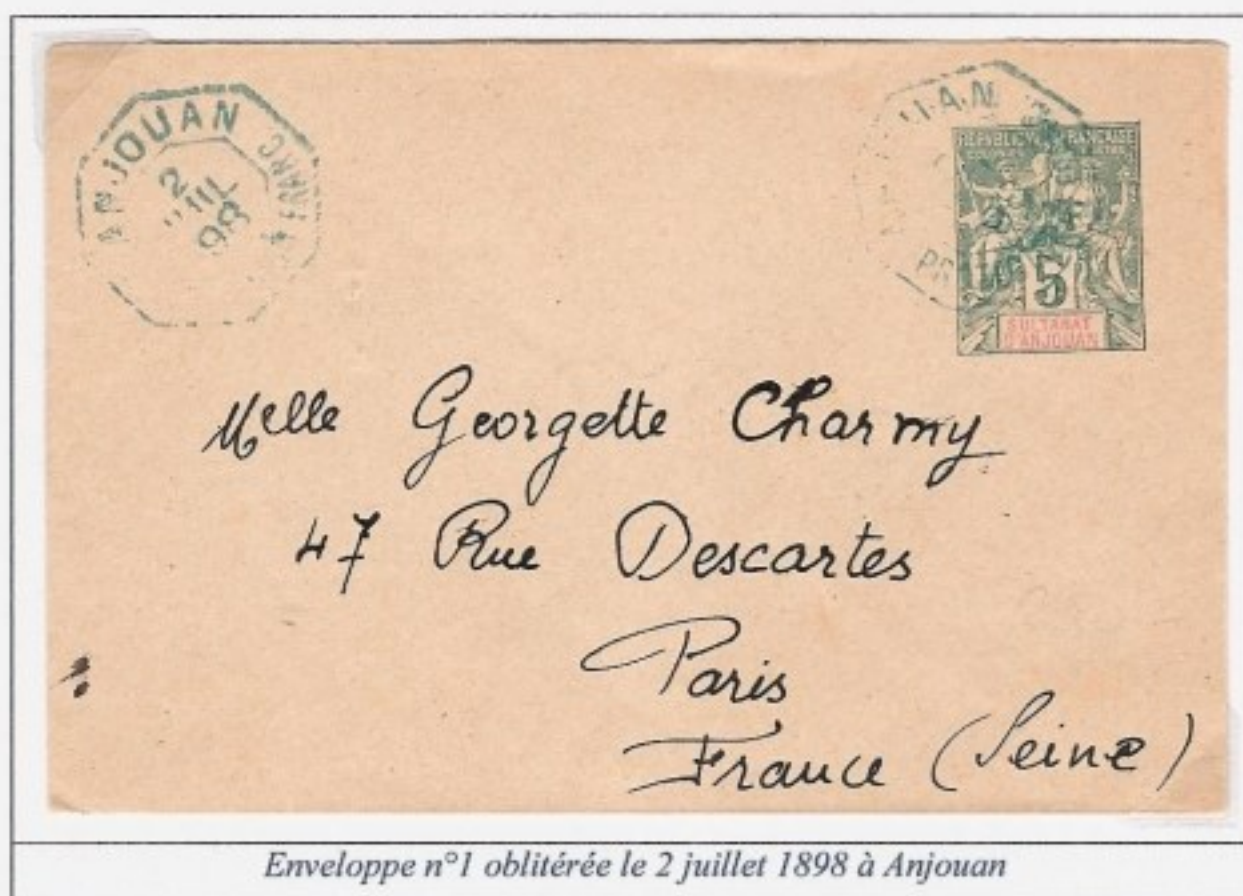 ANJOUAN
2
JUIL
98
REPVBLIQVE FRANÇAISE
5
SULTANAT
D'ANJOUAN
Melle Georgette Charmy
47 Rue Descartes
Paris
France (Seine)
Enveloppe n°1 oblitérée le 2 juillet 1898 à Anjouan